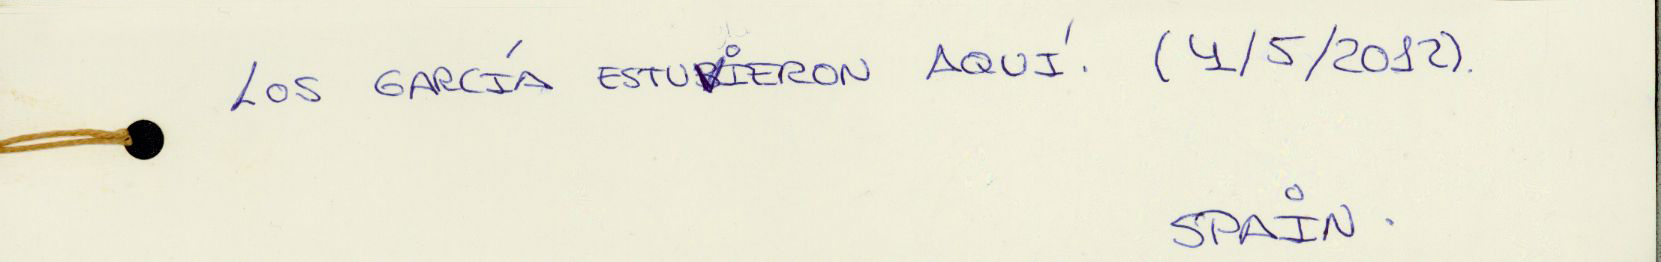 LOS GARCÍA ESTUVIERON AQUÍ. (4/5/2012).
SPAIN.